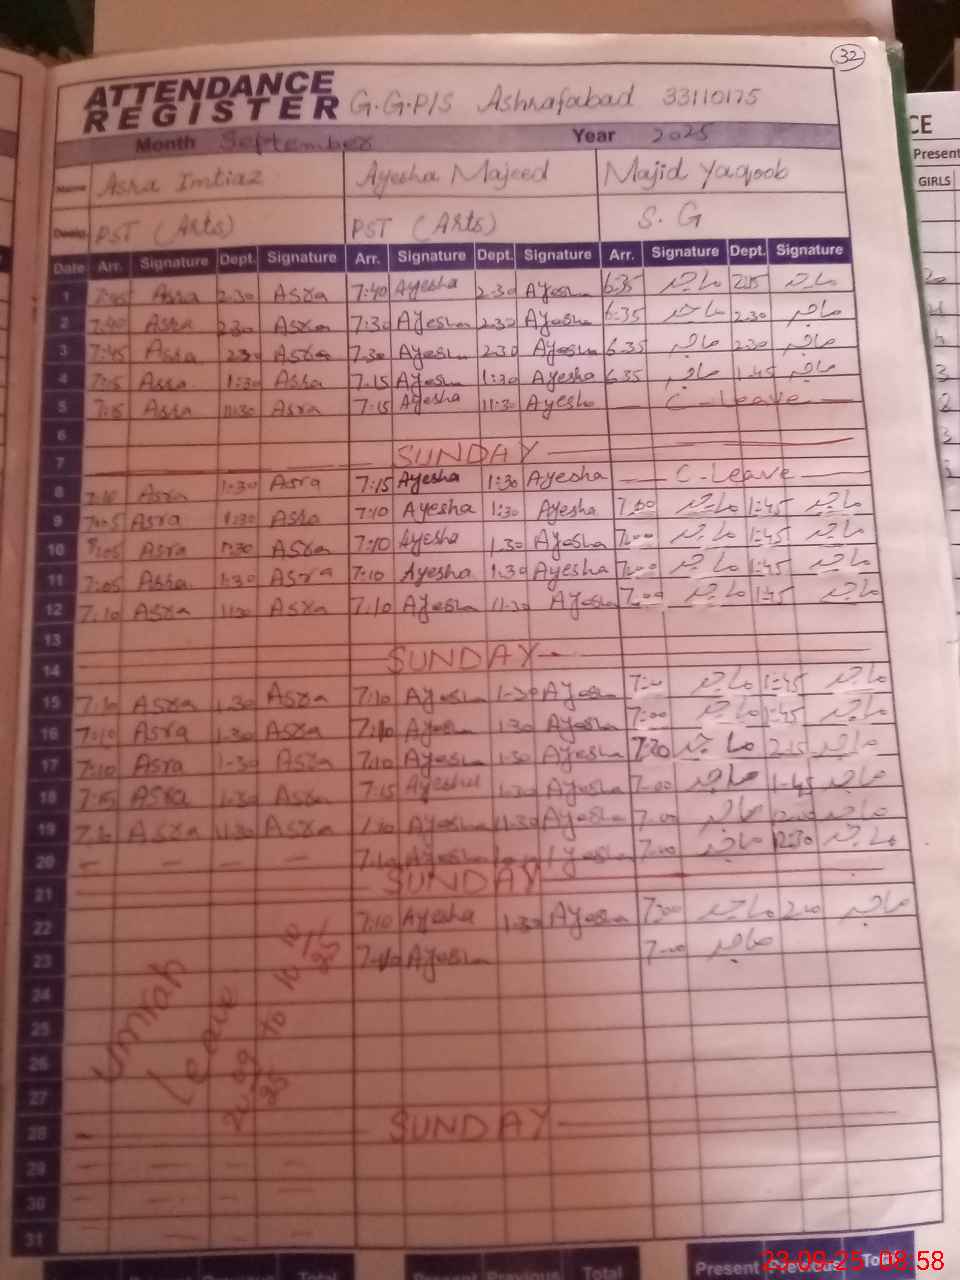 32
ATTENDANCE
REGISTER G.G.P/S Ashrafabad 33110175
Month September Year 2025
Name Asra Imtiaz Ayesha Majeed Majid Yaqoob
PST (Arts) PST (Arts) S. G
Date Arr. Signature Dept. Signature Arr. Signature Dept. Signature Arr. Signature Dept. Signature
1 7:45 Asra 2:30 Asra 7:40 Ayesha 2:30 Ayesha 6:35 ماجد 2:15 ماجد
2 7:40 Asra 2:30 Asra 7:30 Ayesha 2:30 Ayesha 6:35 ماجد 2:30 ماجد
3 7:45 Asra 2:30 Asra 7:30 Ayesha 2:30 Ayesha 6:35 ماجد 2:30 ماجد
4 7:15 Asra 1:30 Asra 7:15 Ayesha 1:30 Ayesha 6:35 ماجد 1:45 ماجد
5 7:15 Asra 11:30 Asra 7:15 Ayesha 11:30 Ayesha C-Leave
6
7 SUNDAY
8 7:10 Asra 1:30 Asra 7:15 Ayesha 1:30 Ayesha C-Leave
9 7:05 Asra 1:30 Asra 7:10 Ayesha 1:30 Ayesha 7:00 ماجد 1:45 ماجد
10 Asra 1:30 Asra 7:10 Ayesha 1:30 Ayesha 7:00 ماجد 1:45 ماجد
11 7:05 Asra 1:30 Asra 7:10 Ayesha 1:30 Ayesha 7:00 ماجد 1:45 ماجد
12 7:10 Asra 11:30 Asra 7:10 Ayesha 11:30 Ayesha 7:00 ماجد 1:45 ماجد
13
14 SUNDAY
15 7:10 Asra 1:30 Asra 7:10 Ayesha 1:30 Ayesha 7:00 ماجد 1:45 ماجد
16 7:10 Asra 1:30 Asra 7:10 Ayesha 1:30 Ayesha 7:00 ماجد 1:45 ماجد
17 7:10 Asra 1:30 Asra 7:10 Ayesha 1:30 Ayesha ماجد 2:15 ماجد
18 7:15 Asra 1:30 Asra 7:15 Ayesha 1:30 Ayesha 7:00 ماجد 1:45 ماجد
19 7:10 Asra 11:30 Asra 7:10 Ayesha 11:30 Ayesha 7:00 ماجد ماجد
20 7:10 Ayesha Ayesha 7:00 ماجد 12:30 ماجد
21 SUNDAY
22 7:10 Ayesha 1:30 Ayesha 7:00 ماجد 2:00 ماجد
23 7:10 Ayesha 7:00 ماجد
24
25
26
27
28 SUNDAY
29
30
31
Umrah
Leave
to
Present Previous Total
Total
Total
CE
Present
GIRLS
23-09-25 08:58